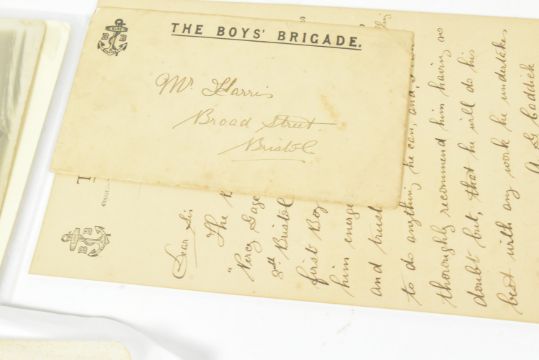 THE BOYS' BRIGADE.
Mr Harris
Broad Street
Bristol
Dear Sir
The
"Percy Gaze
3rd Bristol
first Boy
him engag
and trust
to do anything he can, and,
thoroughly recommend him having no
doubt but, that he will do his
best with any work he undertakes